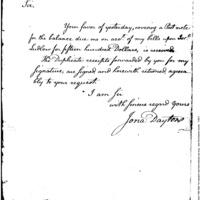 Sir,
Your favor of yesterday, covering a Post note
for the balance due me on acct. of my bills upon
Ludlow for fifteen hundred Dollars, is received
The Duplicate receipts forwarded by you for my
Signature, are signed and herewith returned agreea
bly to your request.
I am Sir
with sincere regard Yours
Jona Dayton